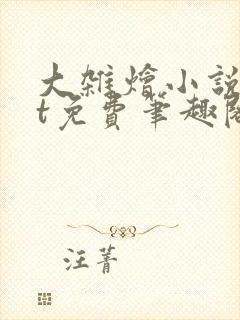 大雜燴小說
t免費筆趣閣
汪菁